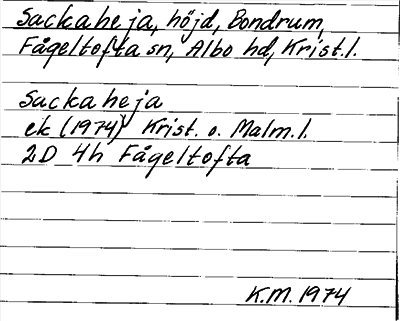 Sackaheja, höjd, Bondrum,
Fågeltofta sn, Albo hd, Krist.l.
Sackaheja
ek (1974) Krist. o. Malm.l.
2D 4h Fågeltofta
K.M. 1974